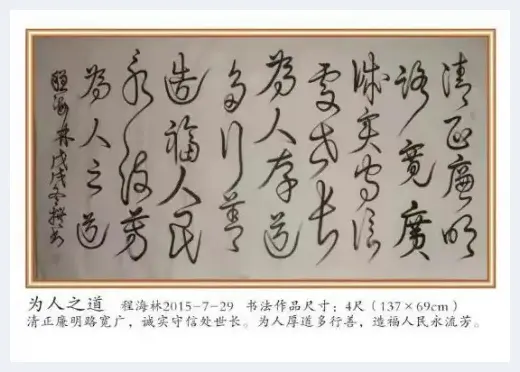 清正廉明
路寬廣
誠实守信
處世长
為人厚道
多行善
造福人民
永流芳
為人之道
程海林戊戌冬撰书
为人之道 程海林2015-7-29 书法作品尺寸：4尺（137×69cm）
清正廉明路宽广，诚实守信处世长。为人厚道多行善，造福人民永流芳。